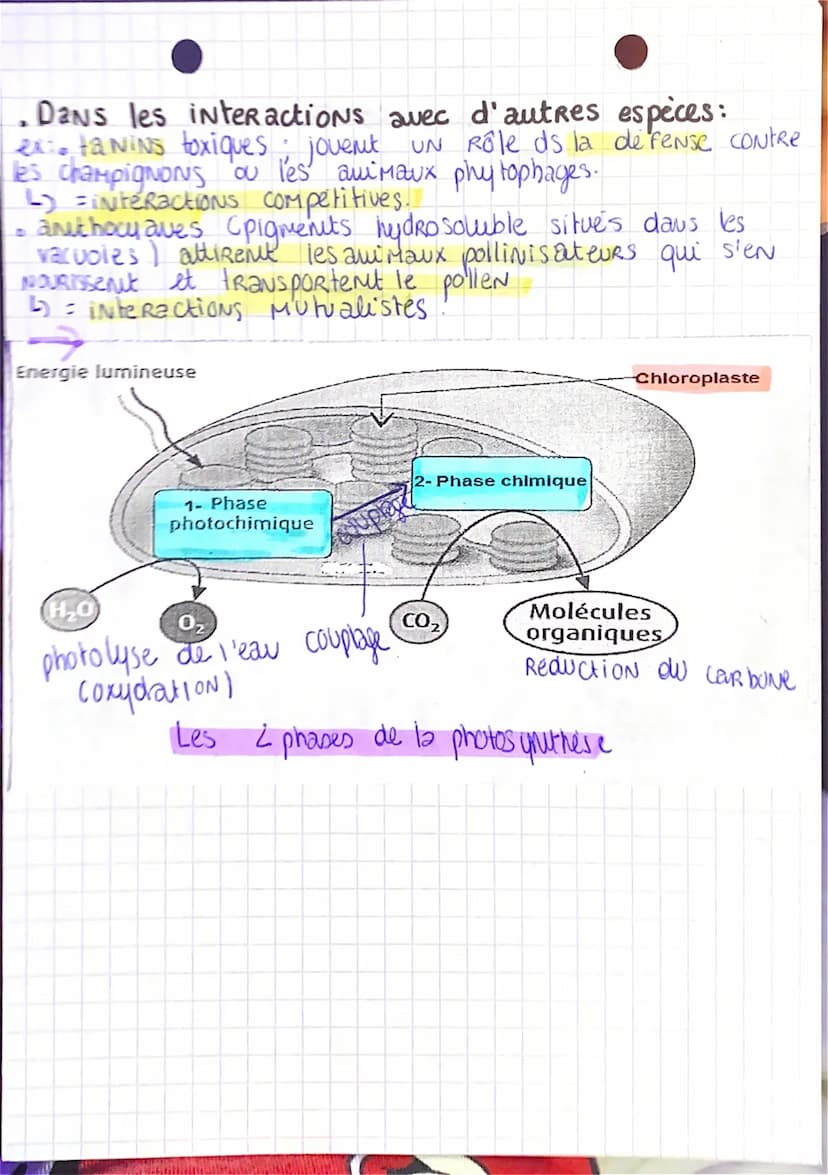 . Dans les interactions avec d'autres espèces:
ex: . tanins toxiques : jouent un rôle ds la défense contre
les champignons ou les animaux phytophages.
↳ = interactions compétitives.
. anthocyanes (pigments hydrosoluble situés dans les
vacuoles) attirent les animaux pollinisateurs qui s'en
nourissent et transportent le pollen
↳ = interactions mutualistes.
Energie lumineuse
Chloroplaste
2- Phase chimique
1- Phase
photochimique
couplage
H₂O
O₂
CO₂
Molécules
organiques
photolyse de l'eau
(oxydation)
couplage
Réduction du carbone
Les 2 phases de la photosynthèse